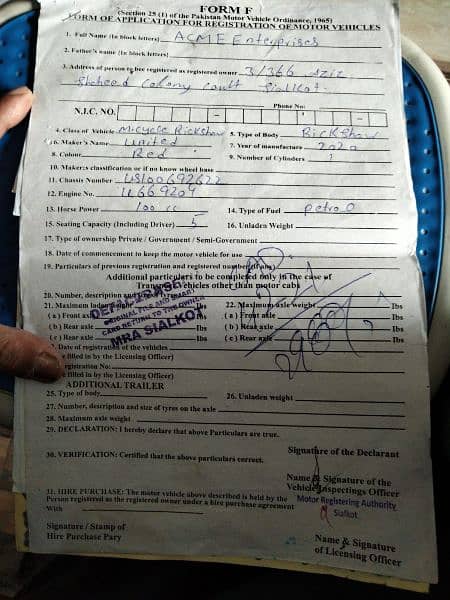 FORM F
(Section 25 (1) of the Pakistan Motor Vehicle Ordinance, 1965)
FORM OF APPLICATION FOR REGISTRATION OF MOTOR VEHICLES
1. Full Name (In block letters) ACME Enterprises
2. Father's name (In block letters)
3. Address of person to bee registered as registered owner 3/366 Aziz
Shaheed Colony Cantt Sialkot.
Phone No:
N.I.C. NO.
4. Class of Vehicle Micycle Rickshaw 5. Type of Body Rickshaw
6. Maker's Name United 7. Year of manufacture 2020
8. Colour Red 9. Number of Cylinders 1
10. Maker,s classification or if no know wheel base
11. Chassis Number
12. Engine No.
13. Horse Power 100 cc 14. Type of Fuel petrol
15. Seating Capacity (Including Driver) 5 16. Unladen Weight
17. Type of ownership Private / Government / Semi-Government
18. Date of commencement to keep the motor vehicle for use
19. Particulars of previous registration and registered number (If any)
Additional particulars to be completed only in the case of
Transport vehicles other than motor cabs
20. Number, description and
21. Maximum laden 22. Maximum axle weight Lbs
(a) Front Lbs (a) Front axle Lbs
(b) Rear axle Lbs (b) Rear axle Lbs
(c) Rear axle Lbs (c) Rear axle Lbs
ORIGINAL FILE AND
CARD RETURN TO THE OWNER
MRA SIALKOT
Date of registration of the vehicles
(be filled in by the Licensing Officer)
registration No:
be filled in by the Licensing Officer)
ADDITIONAL TRAILER
25. Type of body 26. Unladen weight
27. Number, description and size of tyres on the axle
28. Maximum axle weight
29. DECLARATION: I hereby declare that above Particulars are true.
Signature of the Declarant
30. VERIFICATION: Certified that the above particulars correct.
Name & Signature of the
Vehicle Inspectings Officer
Motor Registering Authority
Sialkot
31. HIRE PURCHASE: The motor vehicle above described is held by the
Person registered as the registered owner under a hire purchase agreement
With
Signature / Stamp of
Hire Purchase Pary
Name & Signature
of Licensing Officer